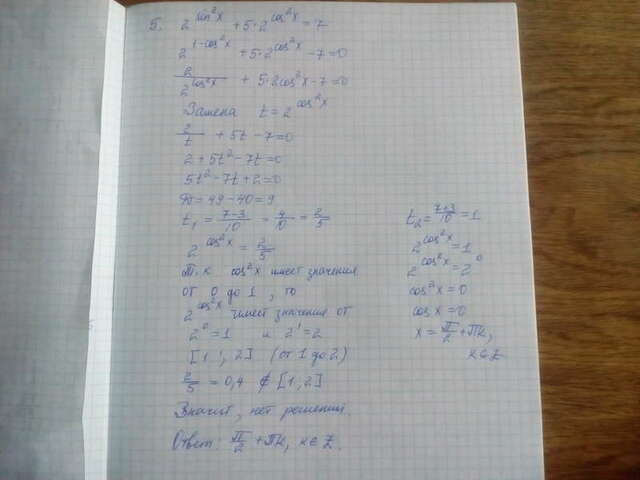 5. 2^(sin²x) + 5·2^(cos²x) = 7
2^(1-cos²x) + 5·2^(cos²x) - 7 = 0
2/2^(cos²x) + 5·2cos²x - 7 = 0
Замена t = 2^(cos²x)
2/t + 5t - 7 = 0
2 + 5t² - 7t = 0
5t² - 7t + 2 = 0
D = 49 - 40 = 9
t₁ = (7-3)/10 = 4/10 = 2/5
2^(cos²x) = 2/5
Т.к. cos²x имеет значения
от 0 до 1, то
2^(cos²x) имеет значения от
2⁰ = 1 и 2¹ = 2
[1; 2] (от 1 до 2)
2/5 = 0,4 ∉ [1, 2]
Значит, нет решений
t₂ = (7+3)/10 = 1
2^(cos²x) = 1
2^(cos²x) = 2⁰
cos²x = 0
cos x = 0
x = π/2 + πk,
k ∈ Z
Ответ: π/2 + πk, k ∈ Z.